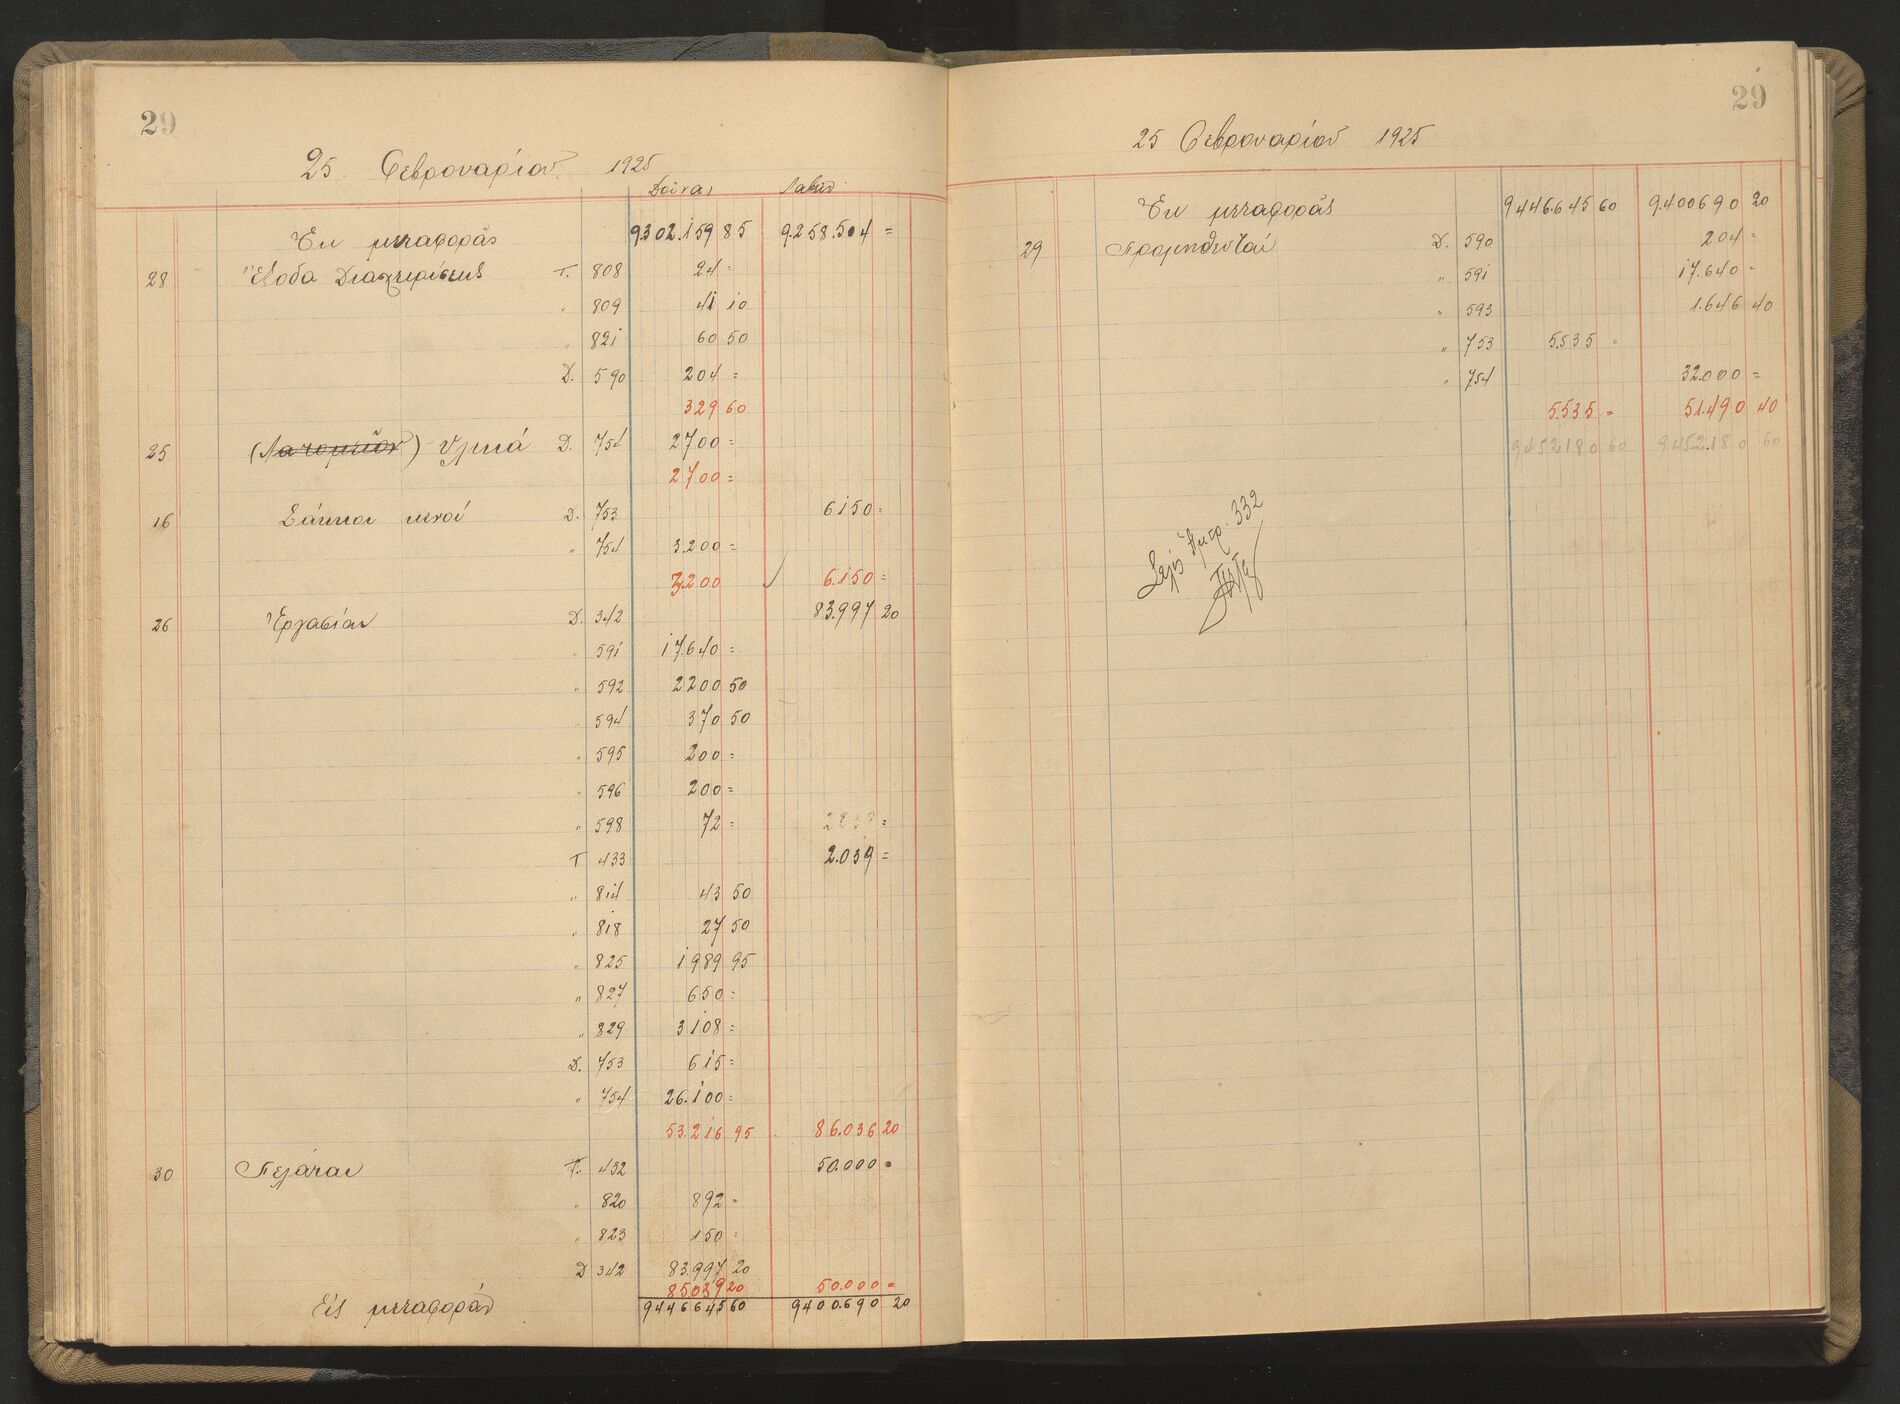 29
25 Φεβρουαρίου 1925
Δοῦναι Λαβεῖν
Ἐκ μεταφορᾶς 9.302.159 85 9.258.504 =
28 Ἔξοδα Διαχειρίσεως Τ. 808 24 =
" 809 41 10
" 821 60 50
Δ. 590 204 =
329 60
25 (Λατομεῖον) Ὑλικά Δ. 754 2700 =
2700 =
16 Σάκκοι κενοί Δ. 753 6150 =
" 754 3.200 =
3.200 6.150 =
26 Ἐργασίαι Δ. 342 83.997 20
" 591 17.640 =
" 592 2200 50
" 594 370 50
" 595 200 =
" 596 200 =
" 598 72 =
Τ 433 2.039 =
" 814 43 50
" 818 27 50
" 825 1989 95
" 827 650 =
" 829 3108 =
Δ. 753 615 =
" 754 26.100 =
53.216 95 86.036 20
30 Πελάται Τ. 432 50.000 =
" 820 892 =
" 823 150 =
Δ 342 83.997 20
85039 20 50.000 =
Εἰς μεταφοράν 9446645 60 9400.690 20
29
25 Φεβρουαρίου 1925
Ἐκ μεταφορᾶς 9446.645 60 9.400690 20
29 Προμηθευταί Δ. 590 204 =
" 591 17.640 =
" 593 1.646 40
" 753 5.535 =
" 754 32.000 =
5.535 = 51.490 40
9452180 60 9.452.180 60
332